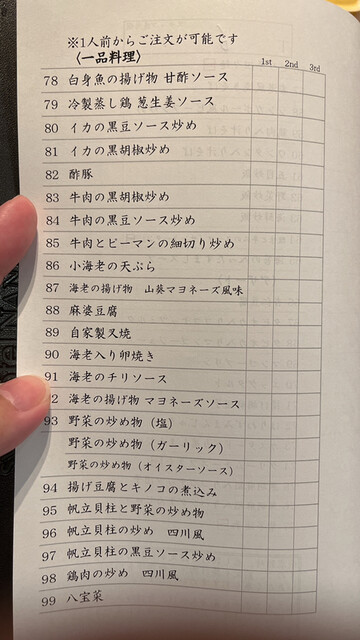 ※1人前からご注文が可能です
〈一品料理〉
1st 2nd 3rd
78 白身魚の揚げ物 甘酢ソース
79 冷製蒸し鶏 葱生姜ソース
80 イカの黒豆ソース炒め
81 イカの黒胡椒炒め
82 酢豚
83 牛肉の黒胡椒炒め
84 牛肉の黒豆ソース炒め
85 牛肉とピーマンの細切り炒め
86 小海老の天ぷら
87 海老の揚げ物 山葵マヨネーズ風味
88 麻婆豆腐
89 自家製叉焼
90 海老入り卵焼き
91 海老のチリソース
2 海老の揚げ物 マヨネーズソース
93 野菜の炒め物（塩）
野菜の炒め物（ガーリック）
野菜の炒め物（オイスターソース）
94 揚げ豆腐とキノコの煮込み
95 帆立貝柱と野菜の炒め物
96 帆立貝柱の炒め 四川風
97 帆立貝柱の黒豆ソース炒め
98 鶏肉の炒め 四川風
99 八宝菜